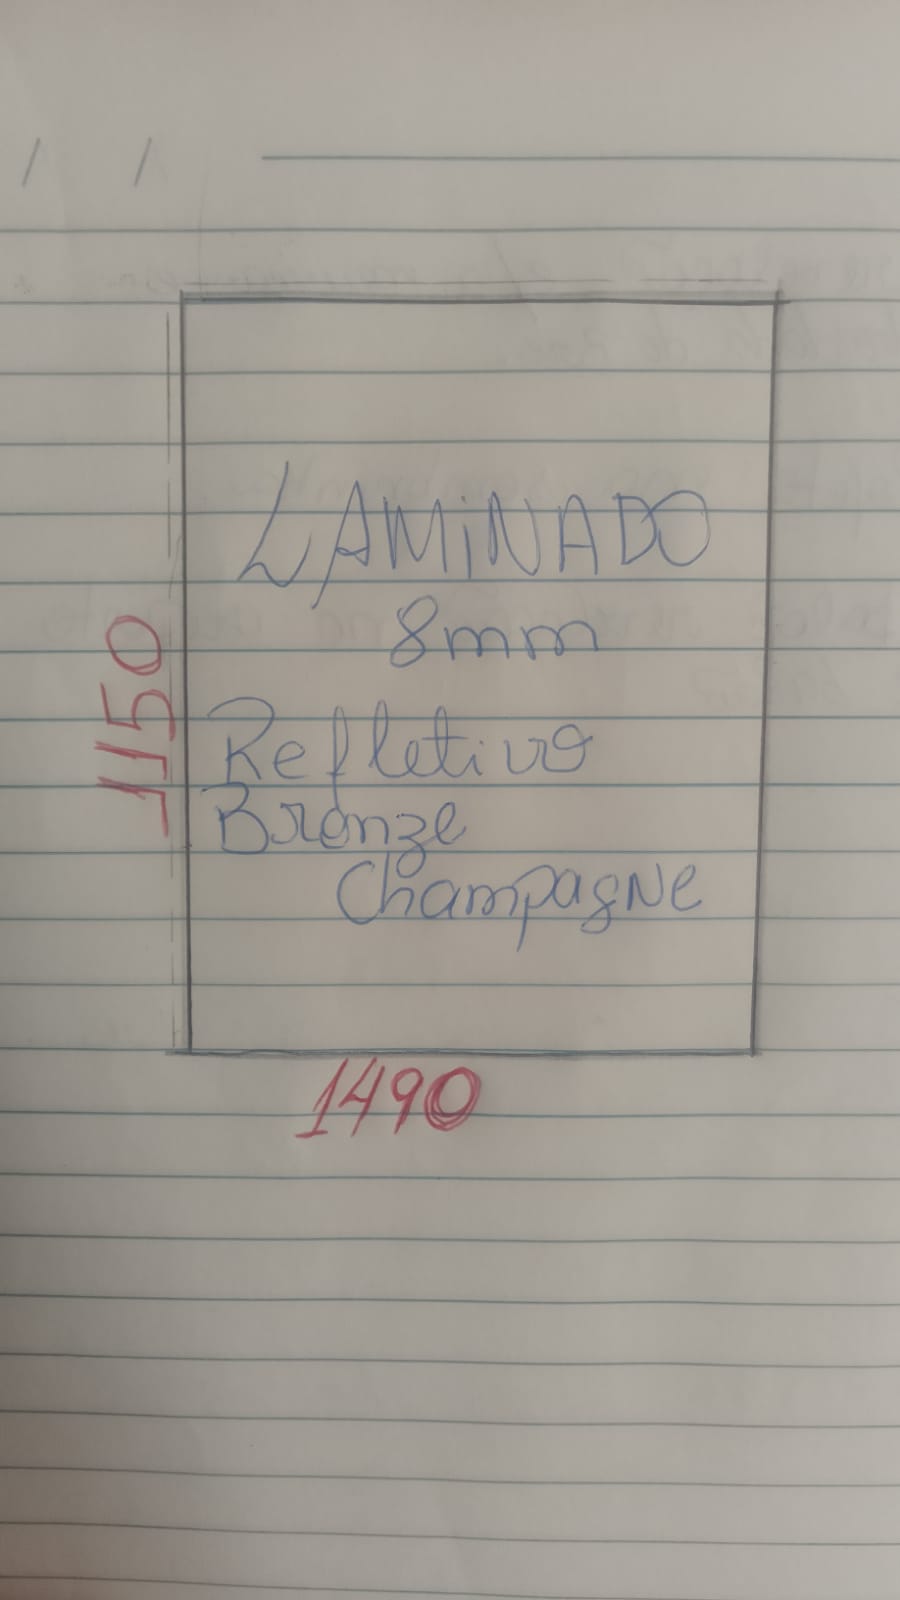 / /
LAMINADO
8mm
Refletivo
Bronze
Champagne
1150
1490